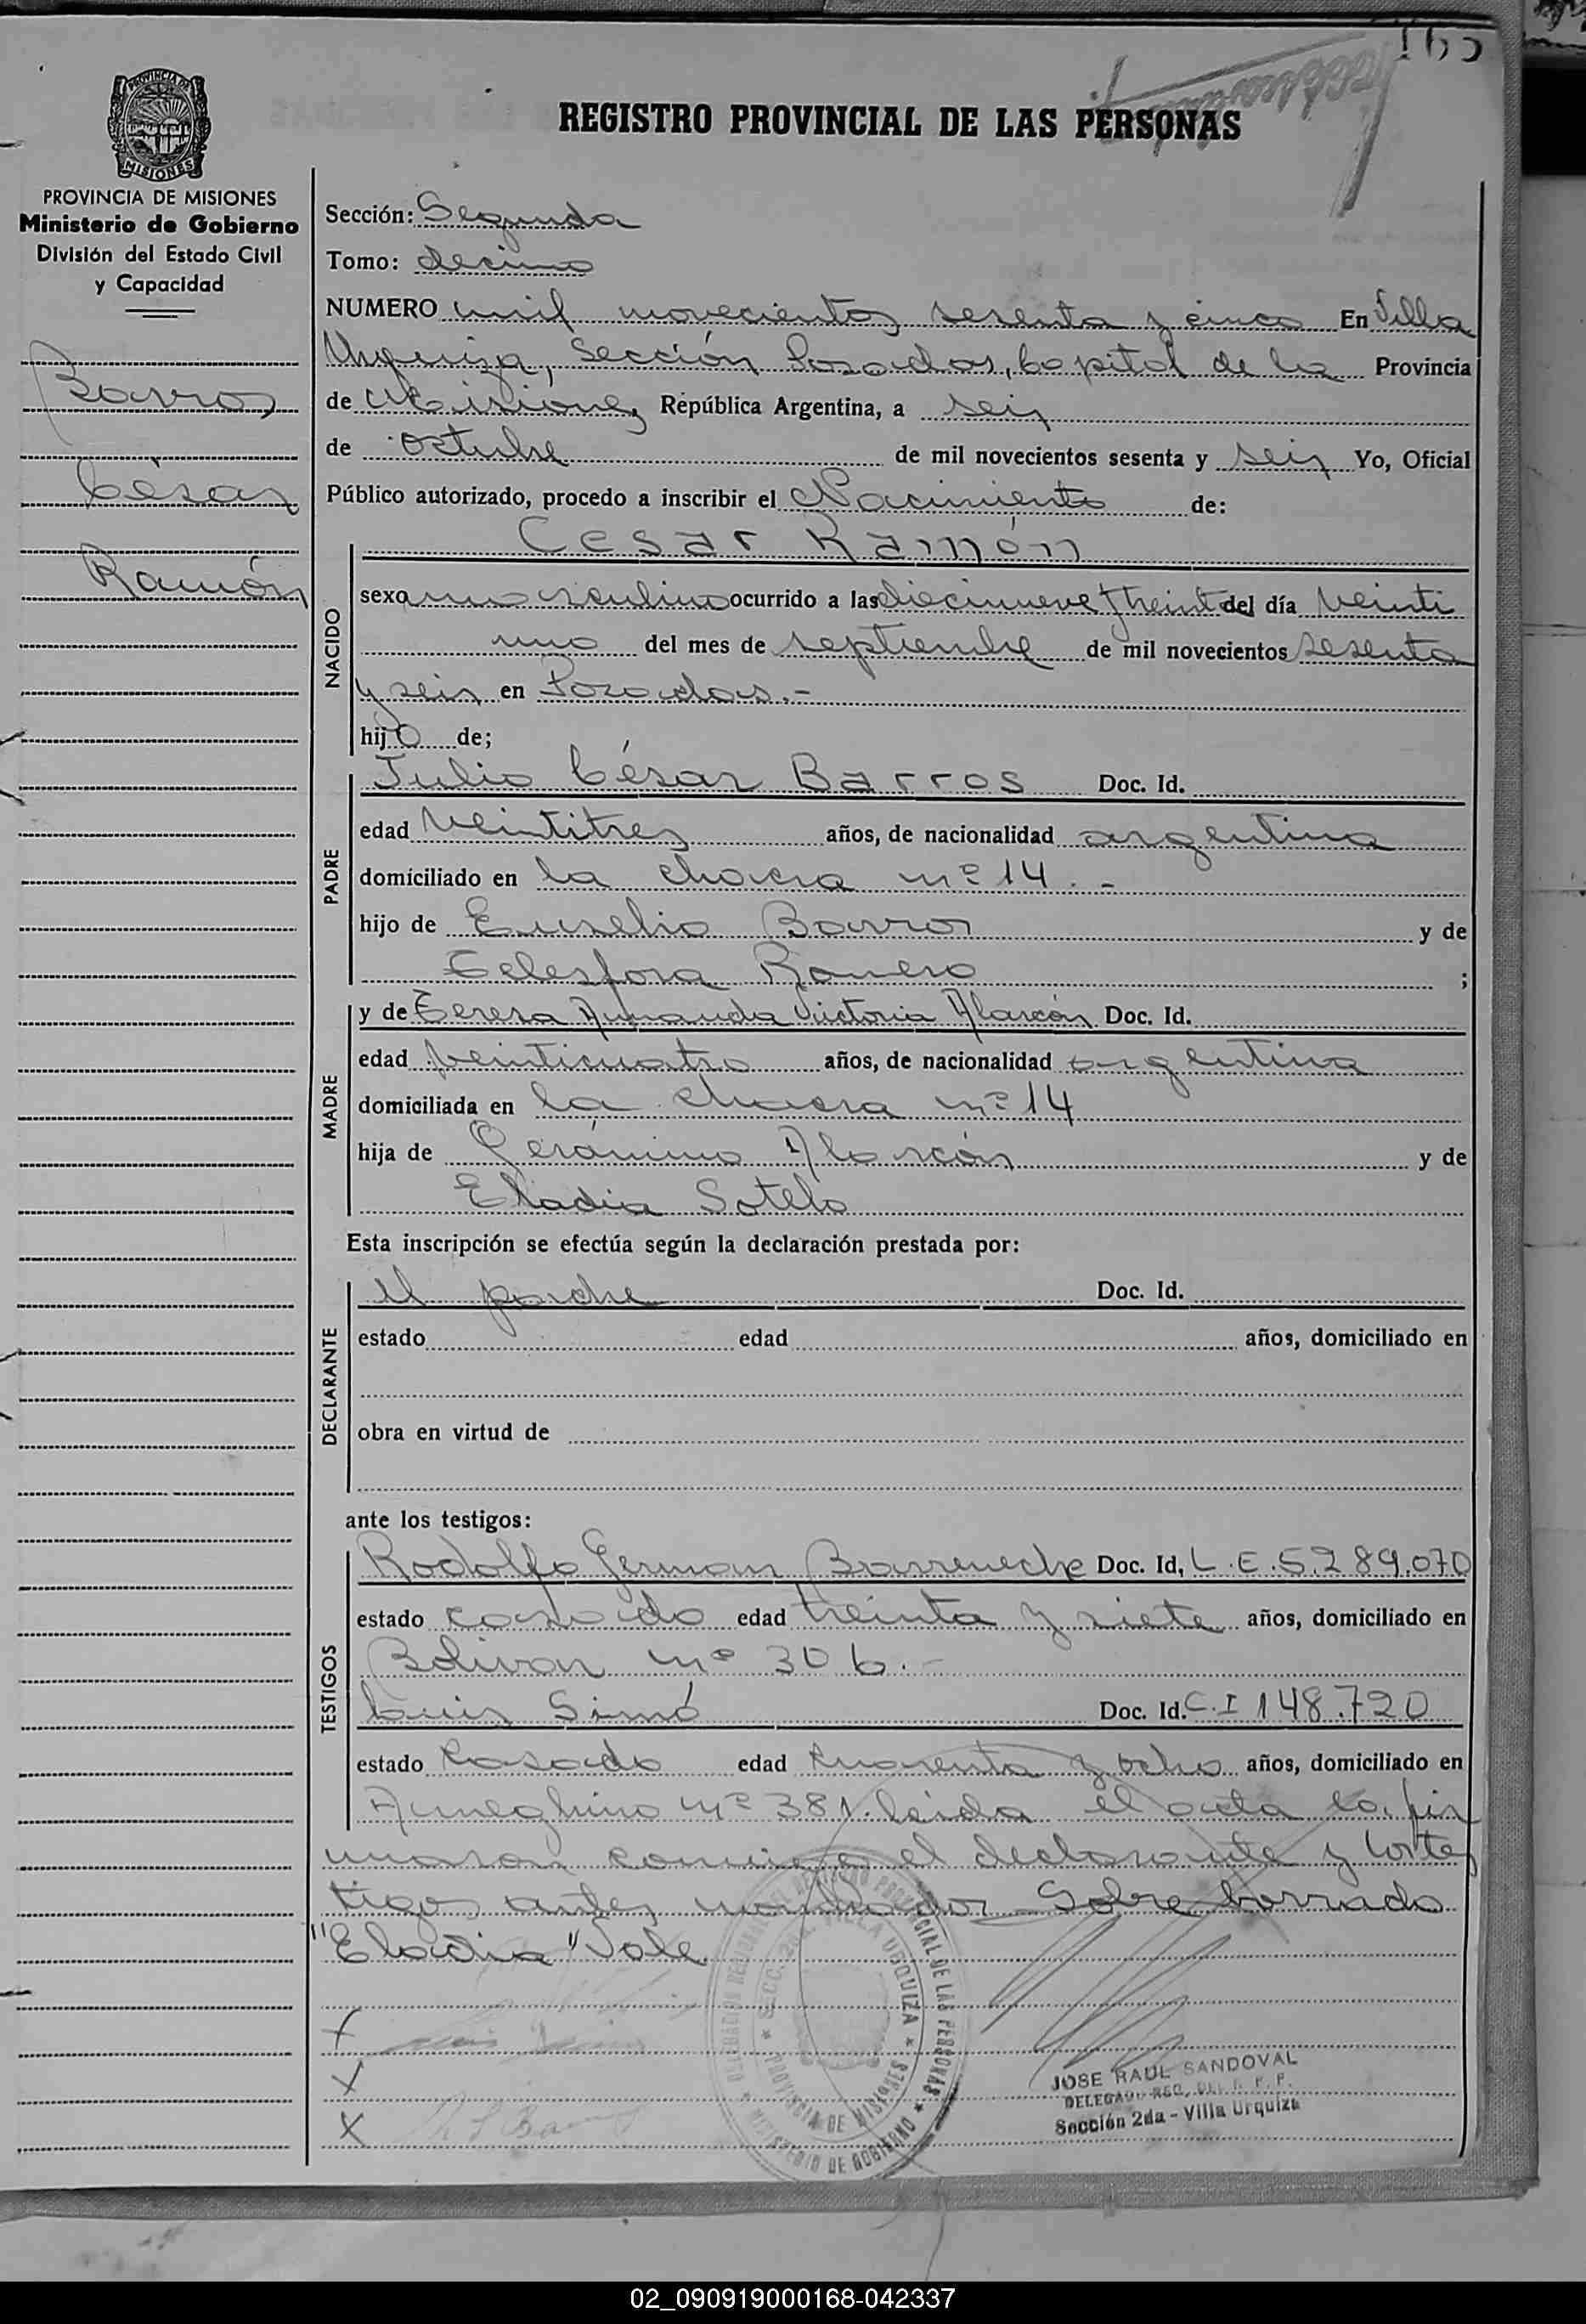 165
PROVINCIA DE
MISIONES
REGISTRO PROVINCIAL DE LAS PERSONAS
PROVINCIA DE MISIONES
Ministerio de Gobierno
División del Estado Civil
y Capacidad
Barros
César
Ramón
Sección: Segunda
Tomo: decimo
NUMERO mil novecientos sesenta y cinco En Villa
Urquiza, Sección Posadas, Capital de la Provincia
de Misiones República Argentina, a seis
de octubre de mil novecientos sesenta y seis Yo, Oficial
Público autorizado, procedo a inscribir el Nacimiento de:
Cesar Ramón
NACIDO
sexo masculino ocurrido a las diecinueve y treinta del día veinti
uno del mes de septiembre de mil novecientos sesenta
y seis en Posadas.-
hijo de;
PADRE
Julio César Barros Doc. Id.
edad veintitres años, de nacionalidad argentina
domiciliado en la chacra nº 14.-
hijo de Euselio Barros y de
Telesfora Romero ;
MADRE
y de Teresa Amanda Victoria Alarcón Doc. Id.
edad veinticuatro años, de nacionalidad argentina
domiciliada en la chacra nº 14
hija de Gerónimo Alarcón y de
Eladia Sotelo
Esta inscripción se efectúa según la declaración prestada por:
DECLARANTE
el padre Doc. Id.
estado edad años, domiciliado en
obra en virtud de
ante los testigos:
TESTIGOS
Rodolfo German Barreneche Doc. Id. L.E.5.289.070
estado casado edad treinta y siete años, domiciliado en
Bolivar nº 306.-
Luis Simó Doc. Id. C.I 148.720
estado casado edad cuarenta y ocho años, domiciliado en
Ameghino nº 381. leida el acta la fir
maron conmigo el declarante y los tes
tigos antes nombrados Sobre borrado
"Eladia" Vale
DELEGACION REGIONAL DEL REGISTRO PROVINCIAL DE LAS PERSONAS
SECC. 2da. VILLA URQUIZA
PROVINCIA DE MISIONES
MINISTERIO DE GOBIERNO
X
X
X
JOSE RAUL SANDOVAL
DELEGADO REG. DEL R. P. P.
Sección 2da - Villa Urquiza
02_090919000168-042337